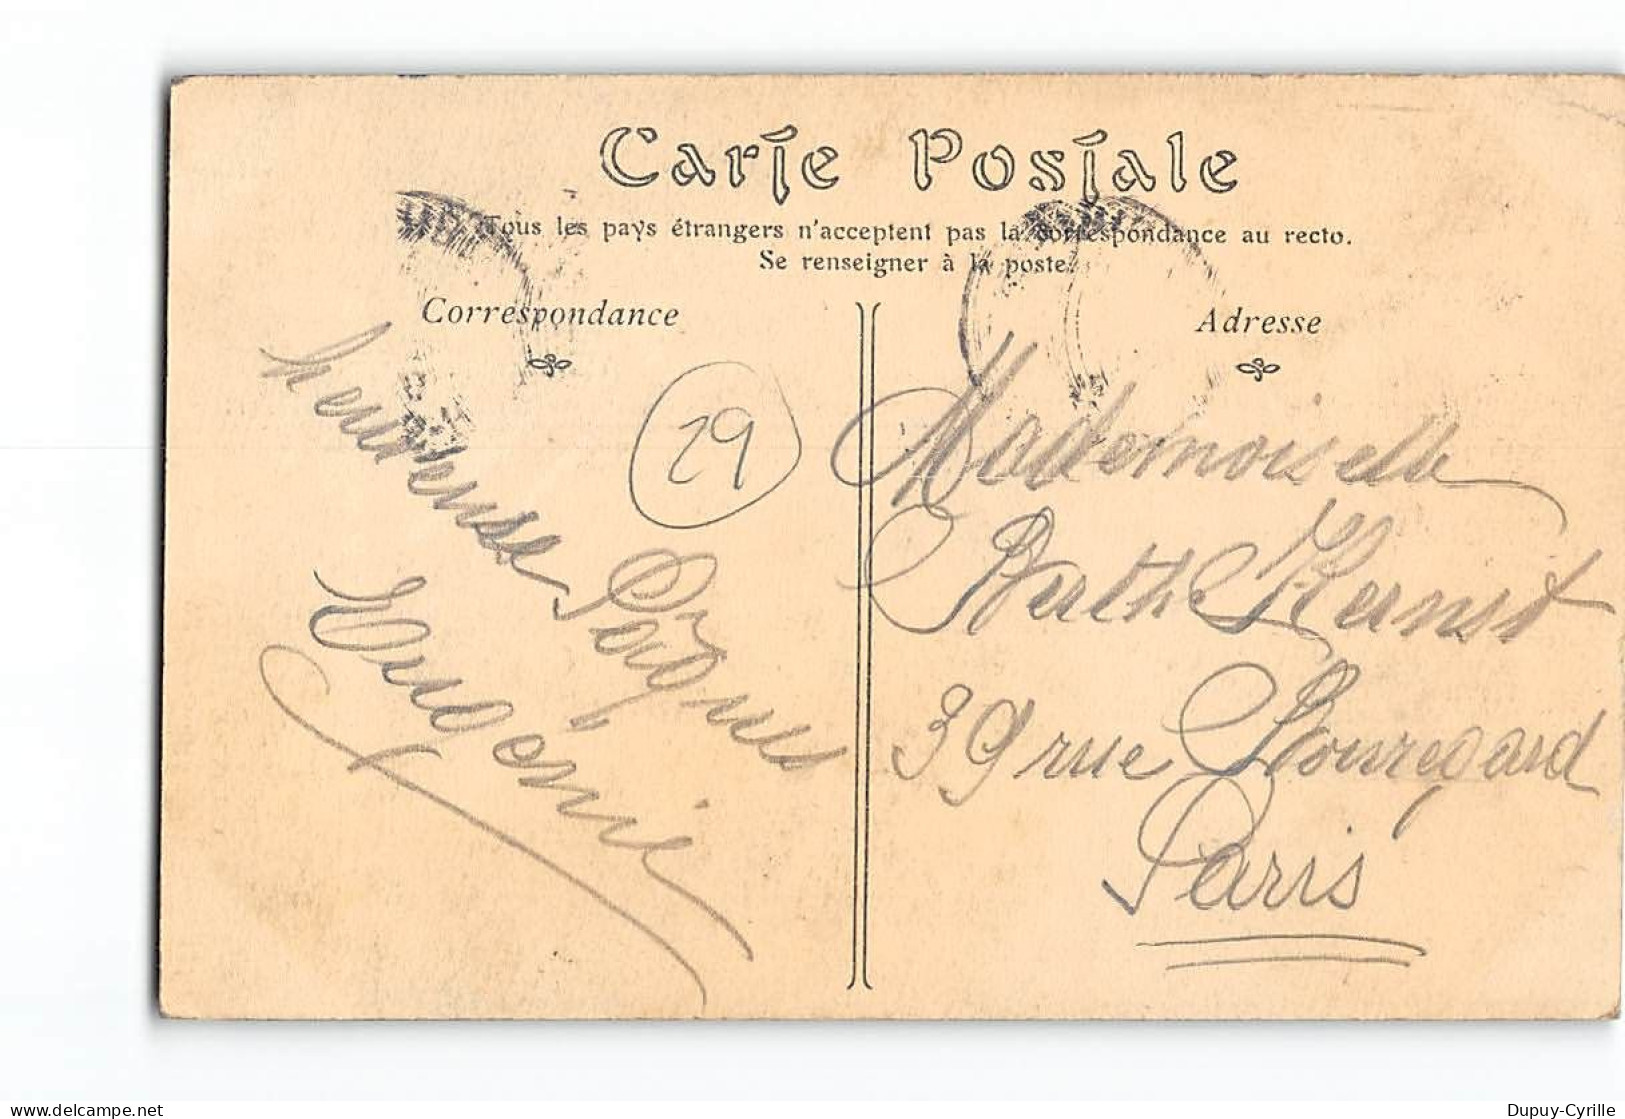 Carte Postale
Tous les pays étrangers n'acceptent pas la correspondance au recto.
Se renseigner à la poste.
Correspondance
Adresse
29
heureuse Pâques
Eugénie
Mademoiselle
Berthe Kunst
39 rue Bouregard
Paris
Dupuy-Cyrille